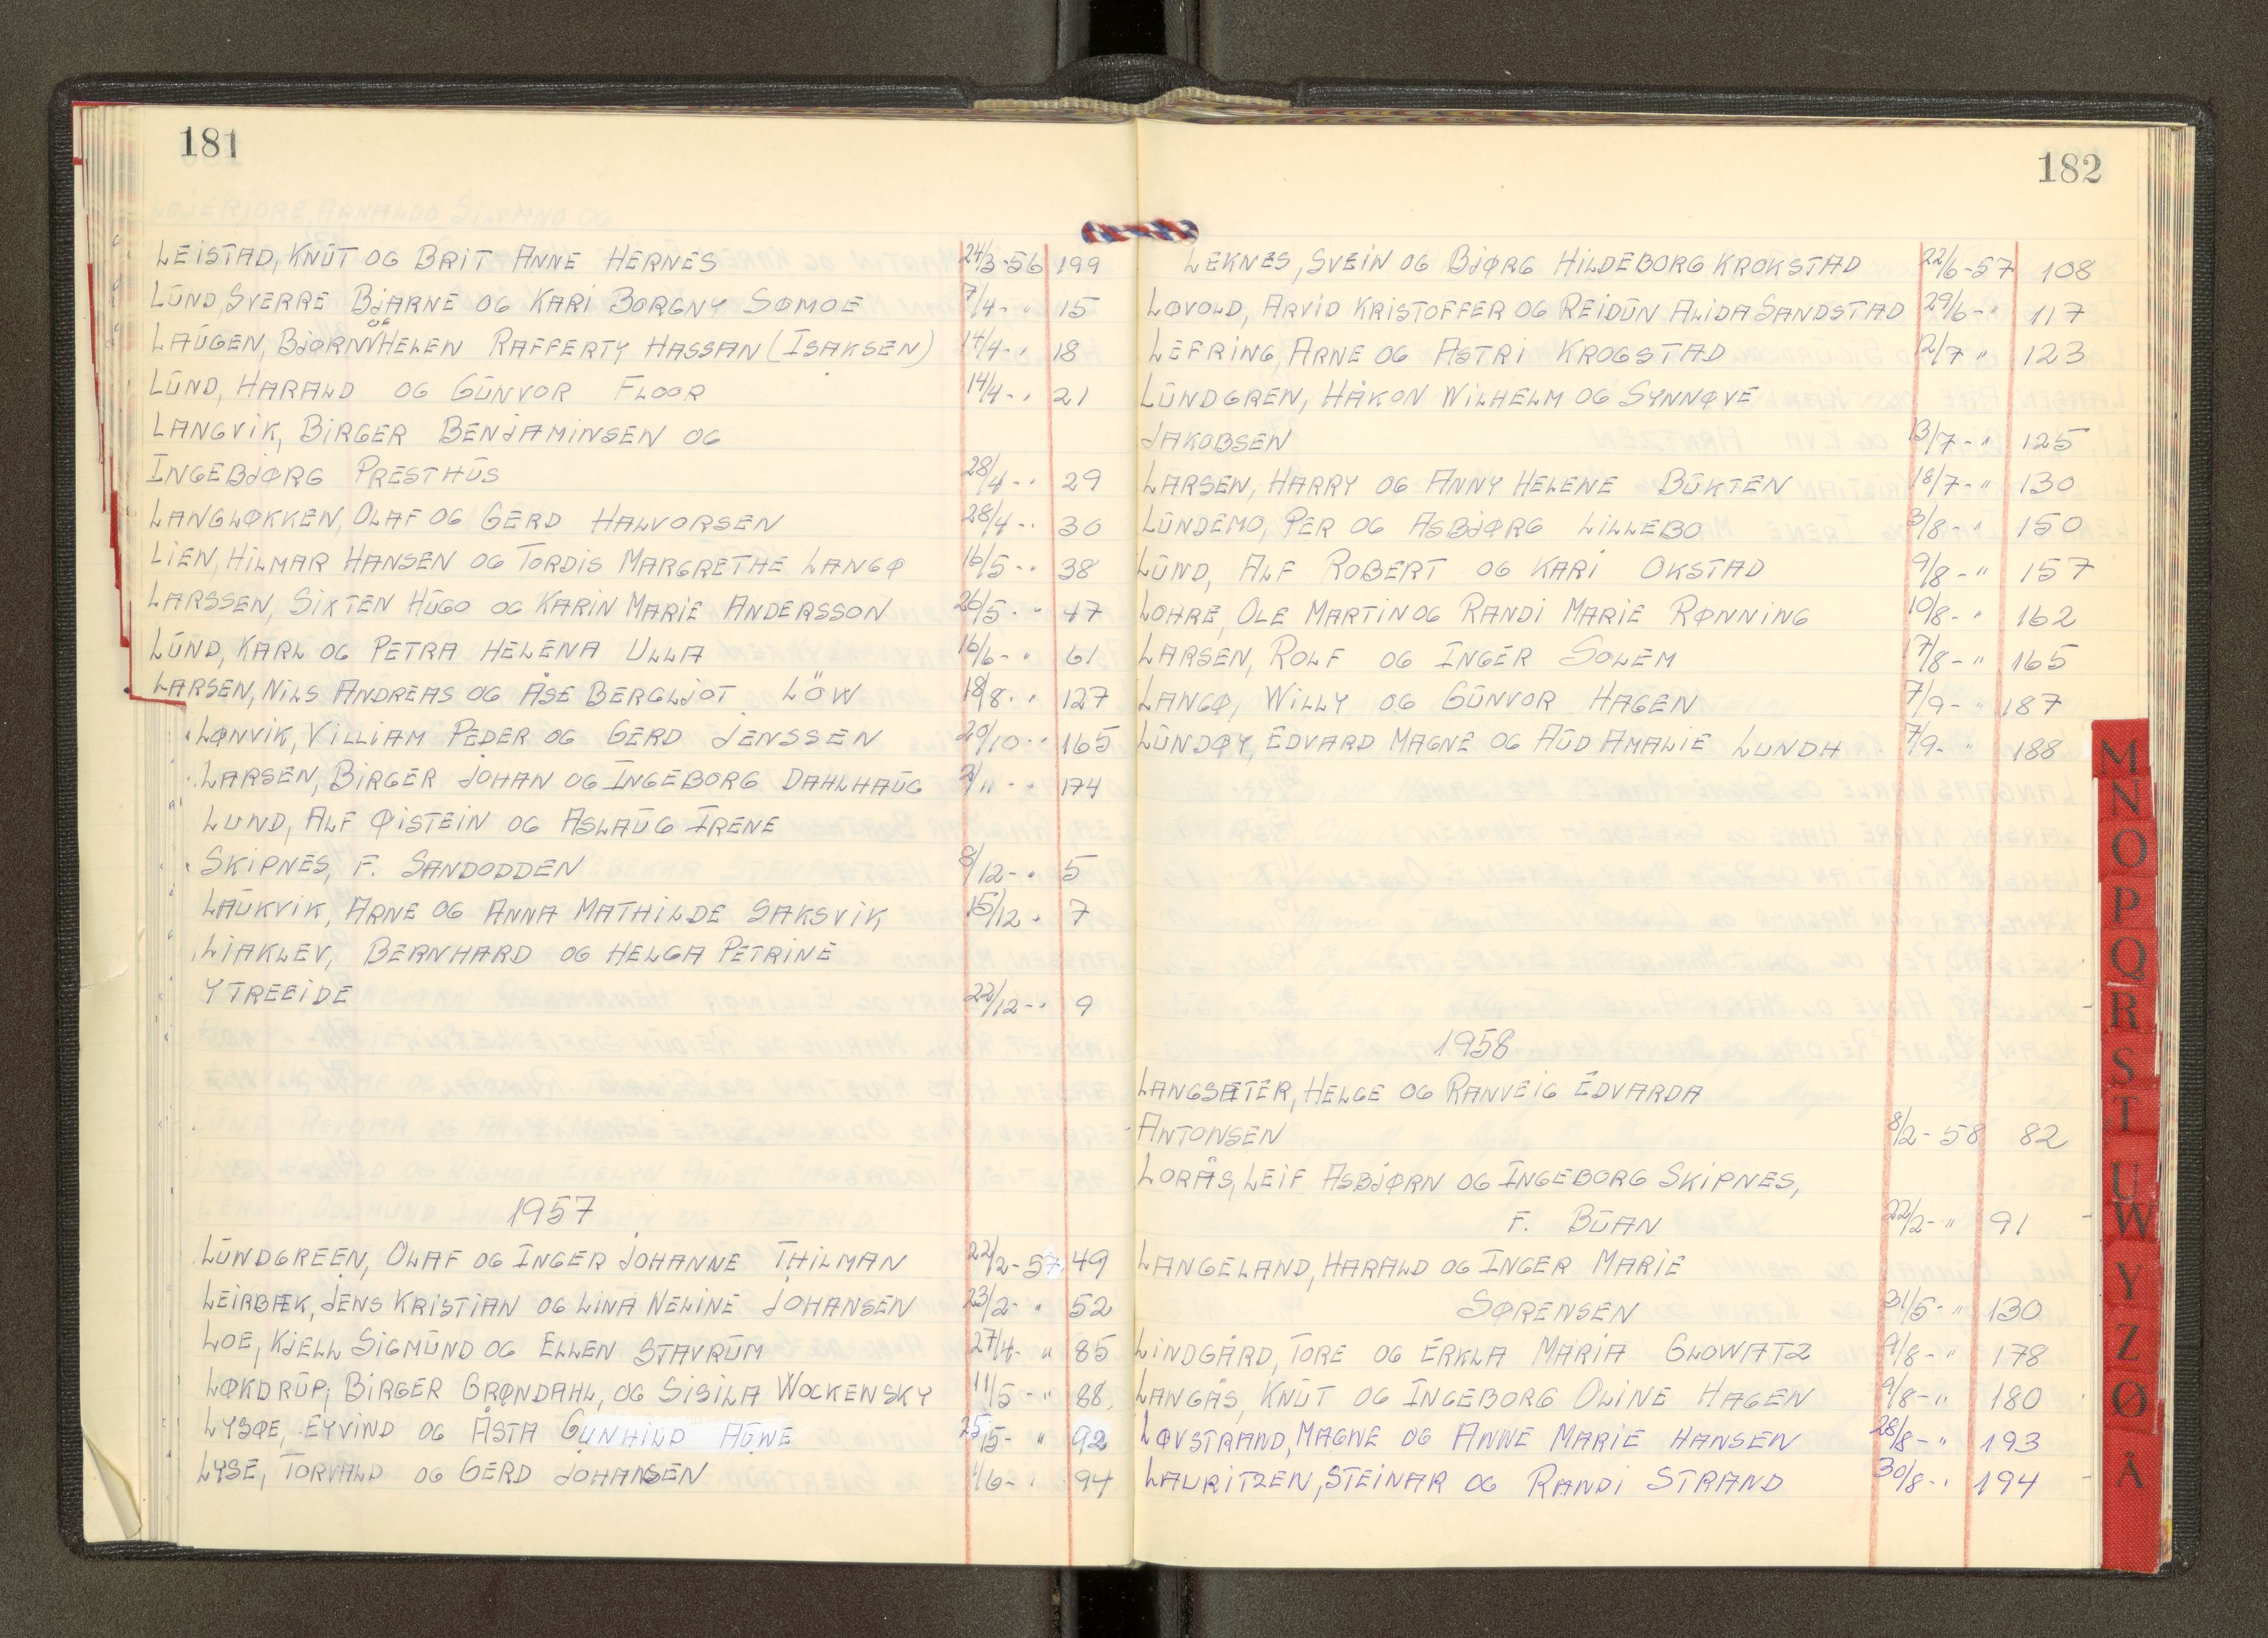 181
LEISTAD, KNUT OG BRIT ANNE HERNES 24/3-56 199
LUND, SVERRE BJARNE OG KARI BORGNY SØMOE 7/4- " 15
LAUGEN, BJØRN OG HELEN RAFFERTY HASSAN (ISAKSEN) 14/4- " 18
LUND, HARALD OG GUNVOR FLOOR 14/4- " 21
LANGVIK, BIRGER BENJAMINSEN OG
INGEBJØRG PRESTHUS 28/4- " 29
LANGLØKKEN, OLAF OG GERD HALVORSEN 28/4- " 30
LIEN, HILMAR HANSEN OG TORDIS MARGRETHE LANGØ 16/5- " 38
LARSSEN, SIXTEN HUGO OG KARIN MARIE ANDERSSON 26/5- " 47
LUND, KARL OG PETRA HELENA ULLA 16/6- " 61
LARSEN, NILS ANDREAS OG ÅSE BERGLJOT LÖW 18/8- " 127
LØNVIK, VILLIAM PEDER OG GERD JENSSEN 20/10- " 165
LARSEN, BIRGER JOHAN OG INGEBORG DAHLHAUG 2/11- " 174
LUND, ALF ØISTEIN OG ASLAUG IRENE
SKIPNES, F. SANDODDEN 8/12- " 5
LAUKVIK, ARNE OG ANNA MATHILDE SAKSVIK 15/12 " 7
LIAKLEV, BERNHARD OG HELGA PETRINE
YTREEIDE 22/12- " 9
1957
LUNDGREEN, OLAF OG INGER JOHANNE THILMAN 22/2-57 49
LEIRBÆK, JENS KRISTIAN OG LINA NELINE JOHANSEN 23/2- " 52
LOE, KJELL SIGMUND OG ELLEN STAVRUM 27/4- " 85
LØKDRUP, BIRGER GRØNDAHL, OG SISILA WOCKENSKY 11/5- " 88
LYSØE, EYVIND OG ÅSTA GUNHILD AUNE 25/5- " 92
LYSE, TORVALD OG GERD JOHANSEN 1/6- " 94
182
LEKNES, SVEIN OG BJØRG HILDEBORG KROKSTAD 22/6-57 108
LØVOLD, ARVID KRISTOFFER OG REIDUN ALIDA SANDSTAD 29/6- " 117
LEFRING, ARNE OG ASTRI KROGSTAD 12/7 " 123
LUNDGREN, HÅKON WILHELM OG SYNNØVE
JAKOBSEN 13/7- " 125
LARSEN, HARRY OG ANNY HELENE BUKTEN 18/7- " 130
LUNDEMO, PER OG ASBJØRG LILLEBO 3/8- " 150
LUND, ALF ROBERT OG KARI OKSTAD 9/8- " 157
LOHRE, OLE MARTIN OG RANDI MARIE RØNNING 10/8- " 162
LARSEN, ROLF OG INGER SOLEM 17/8- " 165
LANGØ, WILLY OG GUNVOR HAGEN 7/9- " 187
LUNDØY, EDVARD MAGNE OG AUD AMALIE LUNDH 7/9- " 188
1958
LANGSÆTER, HELGE OG RANVEIG EDVARDA
ANTONSEN 8/2-58 82
LORÅS, LEIF ASBJØRN OG INGEBORG SKIPNES,
F. BUAN 22/2- " 91
LANGELAND, HARALD OG INGER MARIE
SØRENSEN 31/5- " 130
LINDGÅRD, TORE OG ERKLA MARIA GLOWATZ 9/8- " 178
LANGÅS, KNUT OG INGEBORG OLINE HAGEN 9/8- " 180
LØVSTRAND, MAGNE OG ANNE MARIE HANSEN 28/8- " 193
LAURITZEN, STEINAR OG RANDI STRAND 30/8- " 194
M
N
O
P
Q
R
S
T
U
W
Y
Z
Ø
Å